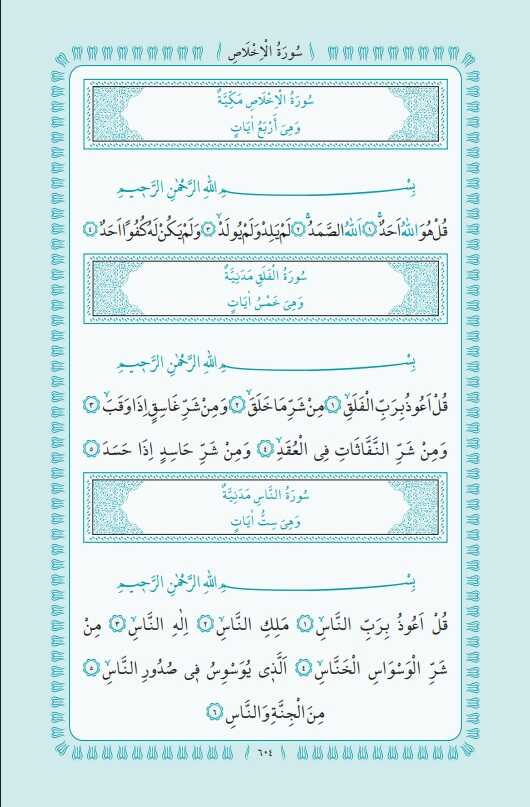 سُورَةُ الْاِخْلَاصِ
سُورَةُ الْاِخْلَاصِ مَكِّيَّةٌ
وَهِىَ أَرْبَعُ اٰيَاتٍ
بِسْمِ اللهِ الرَّحْمٰنِ الرَّحٖيمِ
قُلْ هُوَ اللهُ اَحَدٌۚ ﴿١﴾ اَللهُ الصَّمَدُۚ ﴿٢﴾ لَمْ يَلِدْ وَلَمْ يُولَدْۙ ﴿٣﴾ وَلَمْ يَكُنْ لَهُ كُفُوًا اَحَدٌ ﴿٤﴾
سُورَةُ الْفَلَقِ مَدَنِيَّةٌ
وَهِىَ خَمْسُ اٰيَاتٍ
بِسْمِ اللهِ الرَّحْمٰنِ الرَّحٖيمِ
قُلْ اَعُوذُ بِرَبِّ الْفَلَقِۙ ﴿١﴾ مِنْ شَرِّ مَا خَلَقَۙ ﴿٢﴾ وَمِنْ شَرِّ غَاسِقٍ اِذَا وَقَبَۙ ﴿٣﴾
وَمِنْ شَرِّ النَّفَّاثَاتِ فِى الْعُقَدِۙ ﴿٤﴾ وَمِنْ شَرِّ حَاسِدٍ اِذَا حَسَدَ ﴿٥﴾
سُورَةُ النَّاسِ مَدَنِيَّةٌ
وَهِىَ سِتُّ اٰيَاتٍ
بِسْمِ اللهِ الرَّحْمٰنِ الرَّحٖيمِ
قُلْ اَعُوذُ بِرَبِّ النَّاسِۙ ﴿١﴾ مَلِكِ النَّاسِۙ ﴿٢﴾ اِلٰهِ النَّاسِۙ ﴿٣﴾ مِنْ
شَرِّ الْوَسْوَاسِ الْخَنَّاسِۙ ﴿٤﴾ اَلَّذٖى يُوَسْوِسُ فٖى صُدُورِ النَّاسِۙ ﴿٥﴾
مِنَ الْجِنَّةِ وَالنَّاسِ ﴿٦﴾
٦٠٤